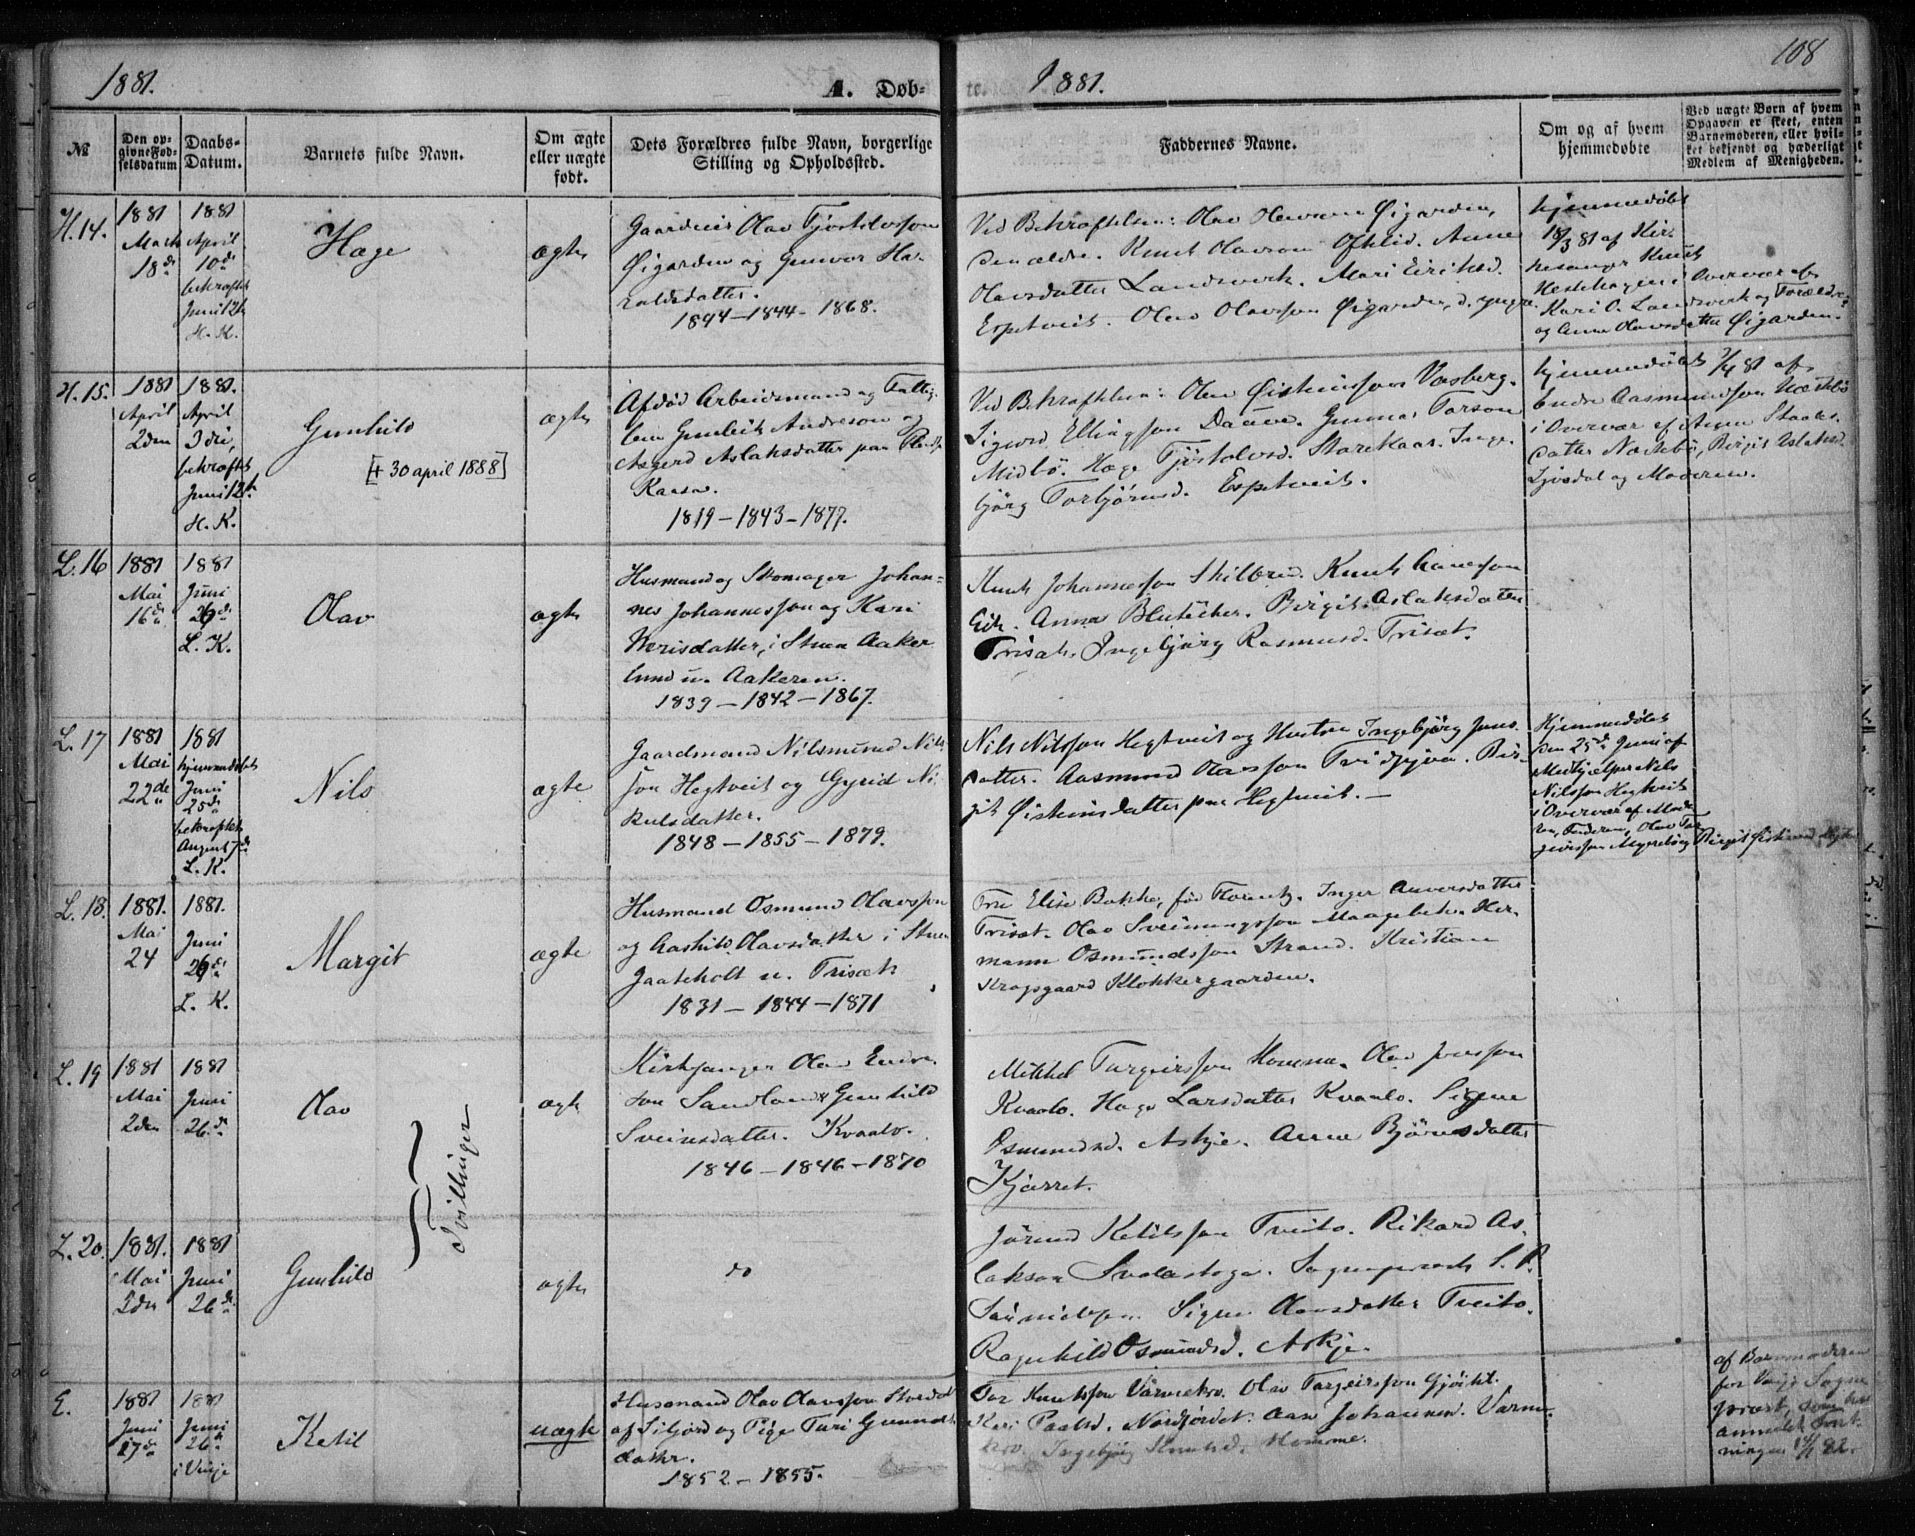 1881.
A. Døb-
te.
1881.
108
№
Den op-
givne Fød-
selsdatum
Daabs-
Datum.
Barnets fulde Navn.
Om ægte
eller uægte
født.
Dets Forældres fulde Navn, borgerlige
Stilling og Opholdssted.
Faddernes Navne.
Om og af hvem
hjemmedøbte
Ved uægte Børn af hvem
Opgaven er skeet, enten
Barnemoderen, eller hvil-
ket bekjendt og hæderligt
Medlem af Menigheden.
H. 14.
1881
Marts
18de
1881
April
10de
bekræftet
Juni 12te
H. K.
Hæge
ægte
Gaardeier Olav Tjostolvsson
Øigarden og Gunvor Ha-
raldsdatter.
1844 - 1844 - 1868.
Ved Bekræftelsen: Olav Olavson Øigarden,
den ældre. Knut Olavson Ofthid. Anne
Olavsdatter Landsverk. Mari Eiriksd.
Espetveit. Olav Olavsson Øigarden, d. yngre.
hjemmedøbt
18/3 81 af Kir-
kesanger Knut
Hestehagen i Overvær af
Kari O. Landsverk og Forældre
og Anne Olavsdatter Øigarden.
H. 15.
1881
April
2den
1881.
April
3die,
bekræftet
Juni 12te
H. K.
Gunhild
[+ 30 april 1888]
ægte
Afdød Arbeidsmand og Fattig-
lem Gunleik Andreson og
Asgerd Aslaksdatter paa
1819 - 1843 - 1877.
Ved Bekræftelsen: Olav Øisteinsson Vasberg.
Sigurd Ellingson Daave. Gunnar Torson
Midbö. Hæge Tjöstolvsd. Storekaas. Inge-
björg Torbjörnsd. Espetveit.
hjemmedøbt 3/4 81 af
Endre Aasmundson Næstebø
i Overvær af
datter Næstebø, Birgit Aslaksd.
Ljosdal og Moderen.
L. 16
1881
Mai
16de
1881
Juni
26de
L. K.
Olav
ægte
Husmand og Skomager Johan-
nes Johannesson og Kari
i Stuen Aaker
lund u. Aakeren.
1839 - 1842 - 1867.
Knut Johannesson Skilbred. Knut
Eik. Anna Birgit Aslaksdatter
Trisæt. Ingebjörg Rasmusd. Trisæt.
L. 17
1881
Mai
22de
1881
hjemmedøbt
Juni
25de
bekræftet
August 7de
L. K.
Nils
ægte
Gaardmand Nilsmund Nils-
son Hegtveit og Gyrid Ni-
kulsdatter.
1848 - 1855 - 1879.
Nils Nilsson Hegtveit og Hustru Ingebjörg Jons-
datter. Aasmund Olavsson Bir-
git Øisteinsdatter paa Hegtveit. —
Hjemmedøbt
den 25de Juni af
Medhjælper Nils
Nilsson Hegtveit
i Overvær af Mode-
ren, Faderen, Olav Tor-
geirsson Birgit Øisteinsd.
L. 18.
1881.
Mai
24
1881.
Juni
26de
L. K.
Margit
ægte
Husmand Osmund Olavsson
og Aashild Olavsdatter i Stuen
Jaateholt u. Trisæt.
1831 - 1844 - 1871
Fru Elise Bakke, før Inger Anversdatter
Trisæt. Olav Sveinungsson Her-
mann Osmundsson Strand. Kristian
Kragsgaard Klokkergaarden.
L. 19
1881
Mai
2den
1881
Juni
26de
Olav
ægte
Kirksanger Olav Endre-
son Sandland & Gunhild
Sveinsdatter. Kvaalo.
1846 - 1846 - 1870
Mikkel Torgeirsson Homme. Olav Jonsson
Kvaalo. Hæge Larsdatter Kvaalo. Signe
Osmundsd. Askje. Anne Björnsdatter
Kjærret.
Tvillinger
L. 20.
1881.
Mai
2den
1881
Juni
26de
Gunhild
ægte
do
Jörund Ketilsson Tveito. Rikard As-
lakson Svalastoga. Sogneprest S. P.
Signe Olavsdatter Tveito.
Ragnhild Osmundsd. Askje.
E.
1881
Juni
17de
1881
Juni
26de
i Vinje
Ketil
uægte
Husmand Olav Olavsson
af Siljord og Pige Turi Gunnuls
datter.
1852 - 1855.
Tor Knutsson Værnekro. Olav Torgeirsson
Kari Paalsd. Nordfjordet. Johannesen. Værne-
kro. Ingebjörg Knutsd. Homme.
af Barnemoderen
for Vinje Sogne-
præst, som har
anmeldt Foret-
ningen 82.